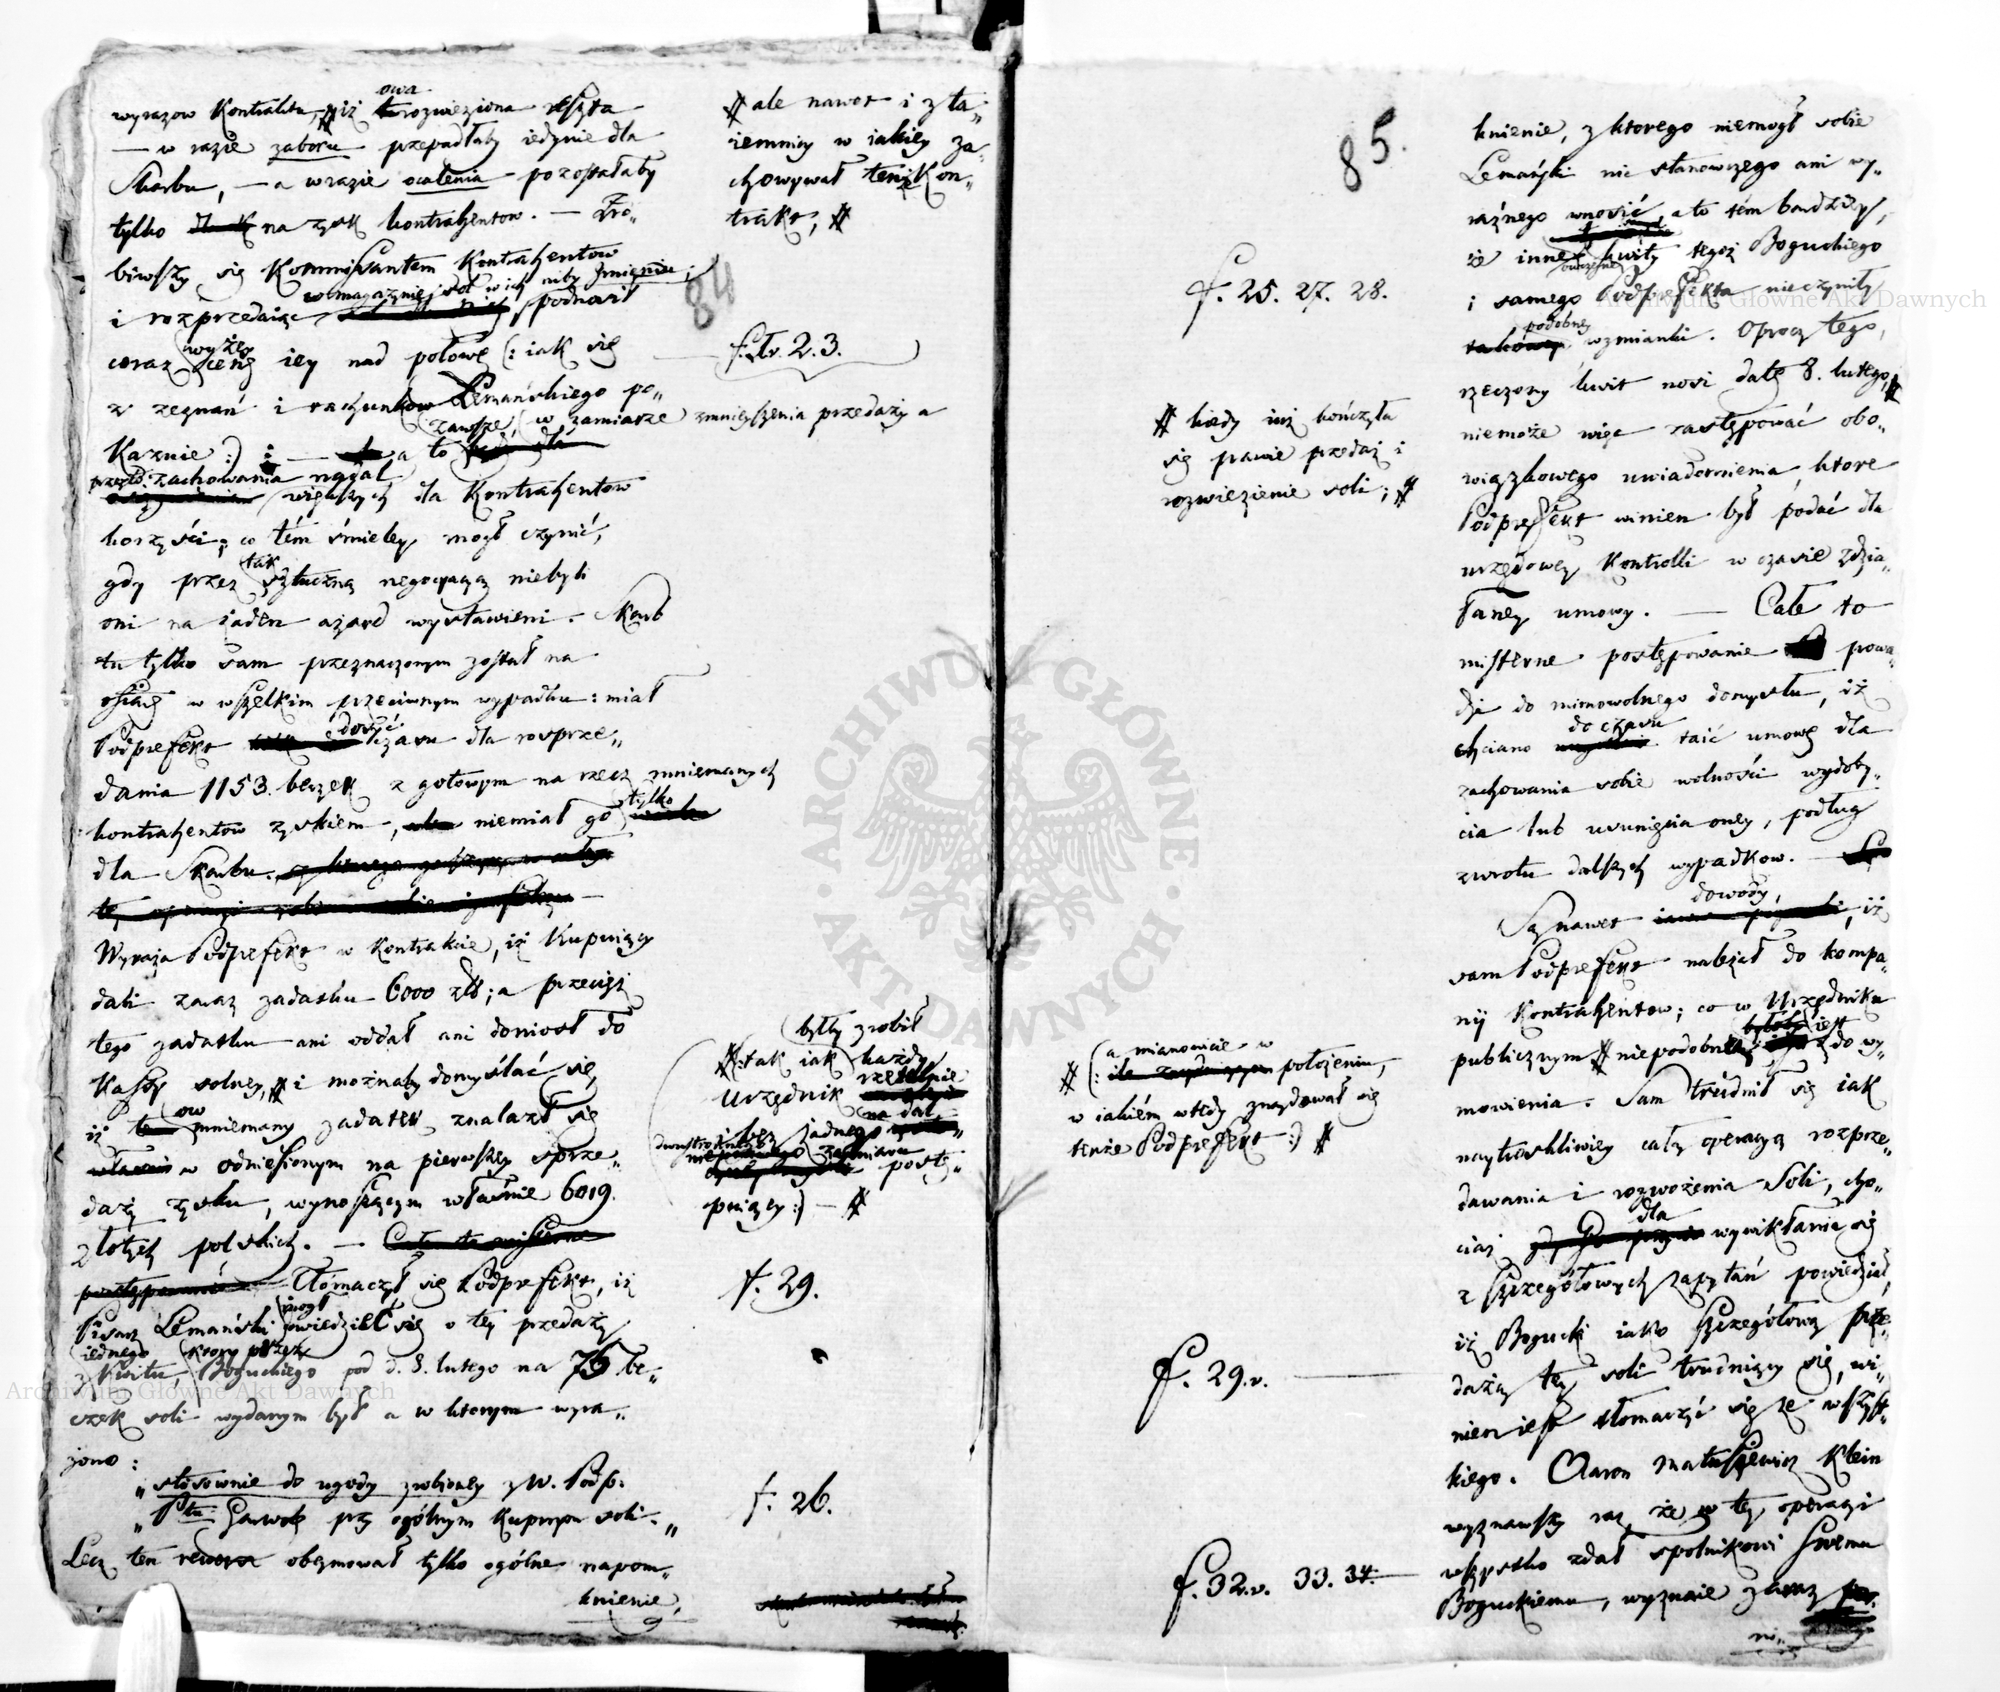 wyrazow Kontraktu, # iż owa nierozwieziona reszta
— w razie zaboru przepadłaby iedynie dla
Skarbu, — a w razie ocalenia pozostałaby
tylko na zysk kontrahentow. — Zro„
biwszy się Kommissantem Kontrahentow
i rozprzedaiąc w magazynie sol w ich niby Imieniu, podnosił
coraz wyżey cenę iey nad połowę (: iak się
z zeznań i rachunkow Lemańskiego po„
Kaznie :) — a to zawsze, w zamiarze zmnieyszenia przedaży a
przeto zachowania nadal
większych dla Kontrahentow
korzyści; co tém śmieley mogł czynić,
gdy przez tak sztuczną negocyacyą niebyli
oni na żaden azard wystawieni. Skarb
tu tylko sam przeznaczonym został na
ofiarę w wszelkim przeciwnym wypadku: miał
Podprefekt dosyć czasu dla rosprze„
dania 1153. beczek z gotowym na rzecz mniemanych
kontrahentow zyskiem, niemiał go tylko
dla Skarbu.
Wyraża Podprefekt w Kontrakcie, iż Kupuiący
dali zaraz zadatku 6000 zł; a przecięż
tego zadatku ani oddał ani doniosł do
Kassy solney, # i możnaby domyślać się,
iż ow mniemany zadatek znalazł się
w odniesionym na pierwszey sprze„
daży zysku, wynoszącym właśnie 6019.
złotych polskich. —
Tłómaczył się Podprefekt, iż
Pisarz Lemański mogł powiedzieć się o tey przedaży
z iednego Kwitu, ktory przez Boguckiego pod d. 8. lutego na 76 be„
czek soli wydanym był a w ktorym wyra„
żono:
„stosownie do ugody zrobioney z W. Podp.
„Ptu Garwol. przy ogólnym Kupnym soli.„
Lecz ten rewers obeymował tylko ogólne napom„
knienie,
# ale nawet i z ta„
iemnicy w iakiey za„
chowywał tenże Kon„
trakt, #
84
f. v. 2. 3.
# (: tak iak byłby zrobił każdy
Urzędnik rzetelnie
żadnego
zamiaru postę„
puiący :) — #
f. 29.
f. 26.
85.
f. 25. 27. 28.
# kiedy iuż kończyła
się prawie przedaż i
rozwiezienie soli; #
# (: a mianowicie w położeniu,
w iakiém wtedy znaydował się
tenże Podprefekt :) #
f. 29.v.
f. 32.v. 33. 34.
knienie, z ktorego niemogł sobie
Lemański nic stanowczego ani wy„
raźnego wnosić, a to tém bardziey,
iż inne owczesne kwity tegoż Boguckiego
i samego Podprefekta nieczyniły
podobney wzmianki. Oprocz tego,
rzeczony kwit nosi datę 8. lutego, #
niemoże więc zastępować obo„
wiązkowego uwiadomienia, ktore
Podprefekt winien był podać dla
urzędowey Kontrolli w czasie zdzia„
łaney umowy. — Całe to
misterne postępowanie powo„
dzi do mimowolnego domysłu, iż
chciano do czasu taić umowę dla
zachowania sobie wolności wydoby„
cia lub usunięcia oney, podług
zwrotu dalszych wypadkow. —
Są nawet dowody, iż
sam Podprefekt należał do kompa„
nij Kontrahentow; co w Urzędniku
publicznym # niepodobne iest do wy„
mowienia. Sam trudnił się iak
naytroskliwiey całą operacyą rozprze„
dawania i rozwożenia Soli, cho„
ciaż dla wywikłania się
z szczegółowych zapytań powiedział,
iż Bogucki iako szczegółową prze„
dażą tey soli trudniący się, wi„
nien iest tłomaczyć się ze wszyst„
kiego. Aaron Matuszewicz Klein
wyznawszy raz, że w tey operacyi
wszystko zdał spolnikowi Swemu
Boguckiemu, wyznaie zaraz